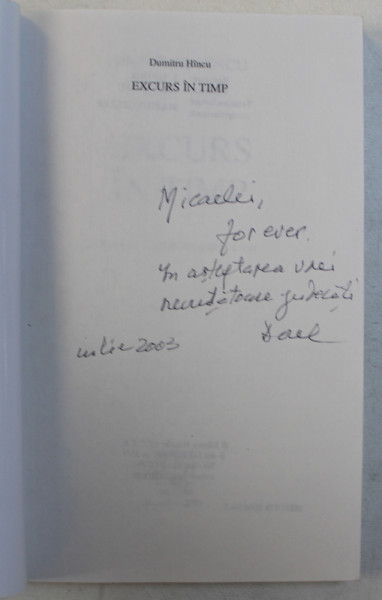 Dumitru Hîncu
EXCURS ÎN TIMP
Micaelei,
forever.
În așteptarea unei
necruțătoare judecăți
iulie 2003